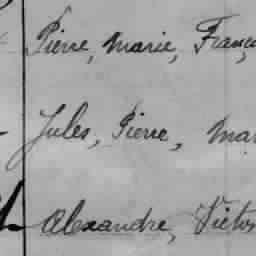 Pierre, Marie, Franç
Jules, Pierre, Mar
Alexandre, Victo